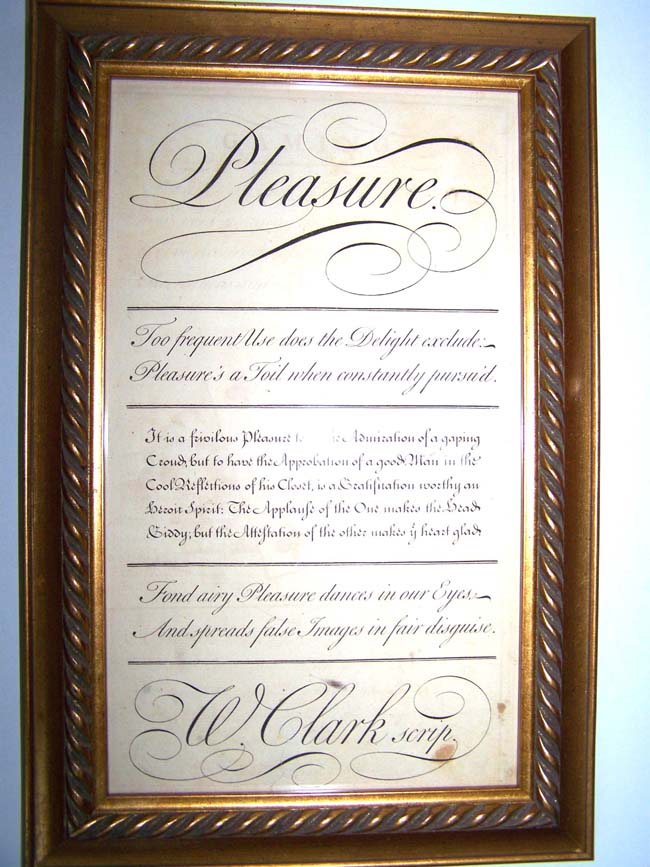 Pleasure.
Too frequent Use does the Delight exclude:
Pleasure's a Toil when constantly pursu'd.
It is a frivilous Pleasure to Admiration of a gaping
Croud, but to have the Approbation of a good Man in the
Cool Reflections of his Closet, is a Gratification worthy an
Heroic Spirit: The Applause of the One makes the Head
Giddy, but the Attestation of the other makes ẏ heart glad
Fond airy Pleasure dances in our Eyes,
And spreads false Images in fair disguise.
W. Clark scrip.